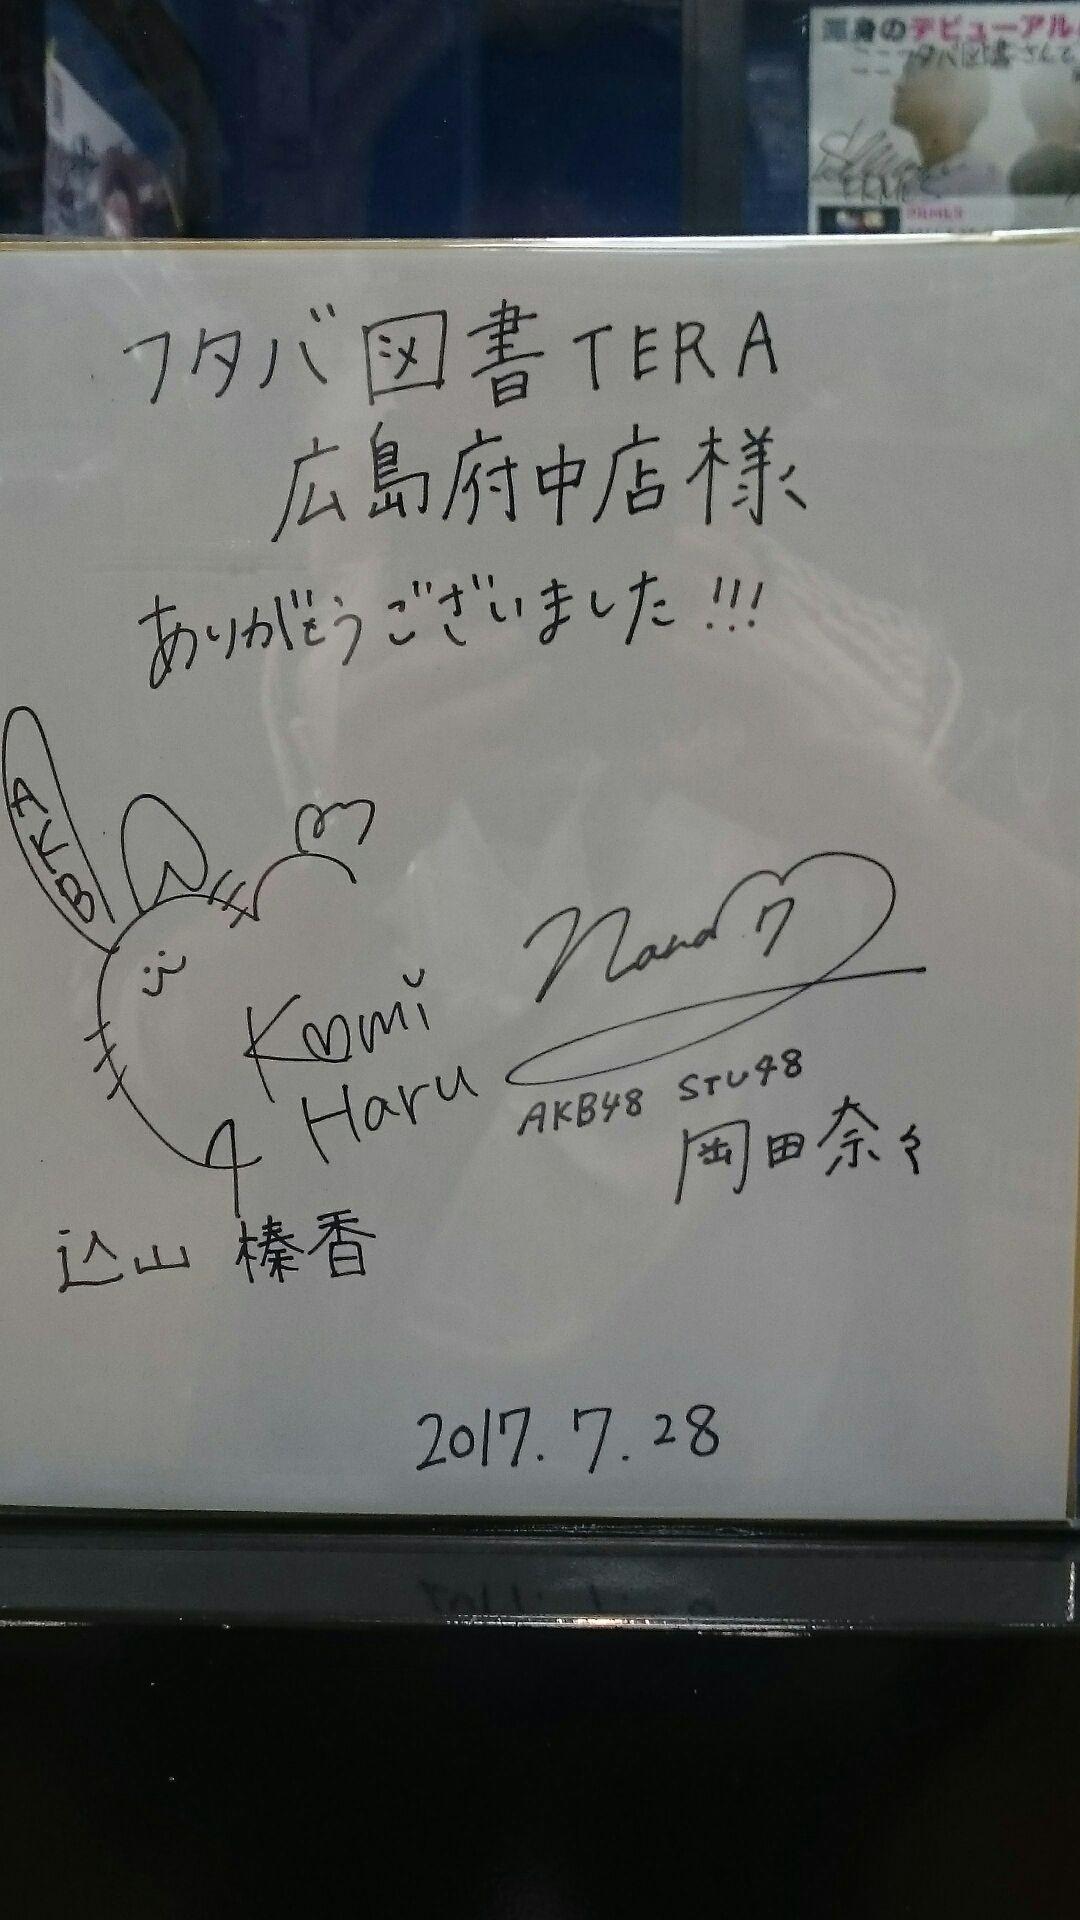 渾身のデビューアルバ
フタバ図書さんで
フタバ図書TERA
広島府中店様
ありがとうございました!!!
AKB
Komi
Haru
込山榛香
Nana 7
AKB48 STU48
岡田奈々
2017.7.28